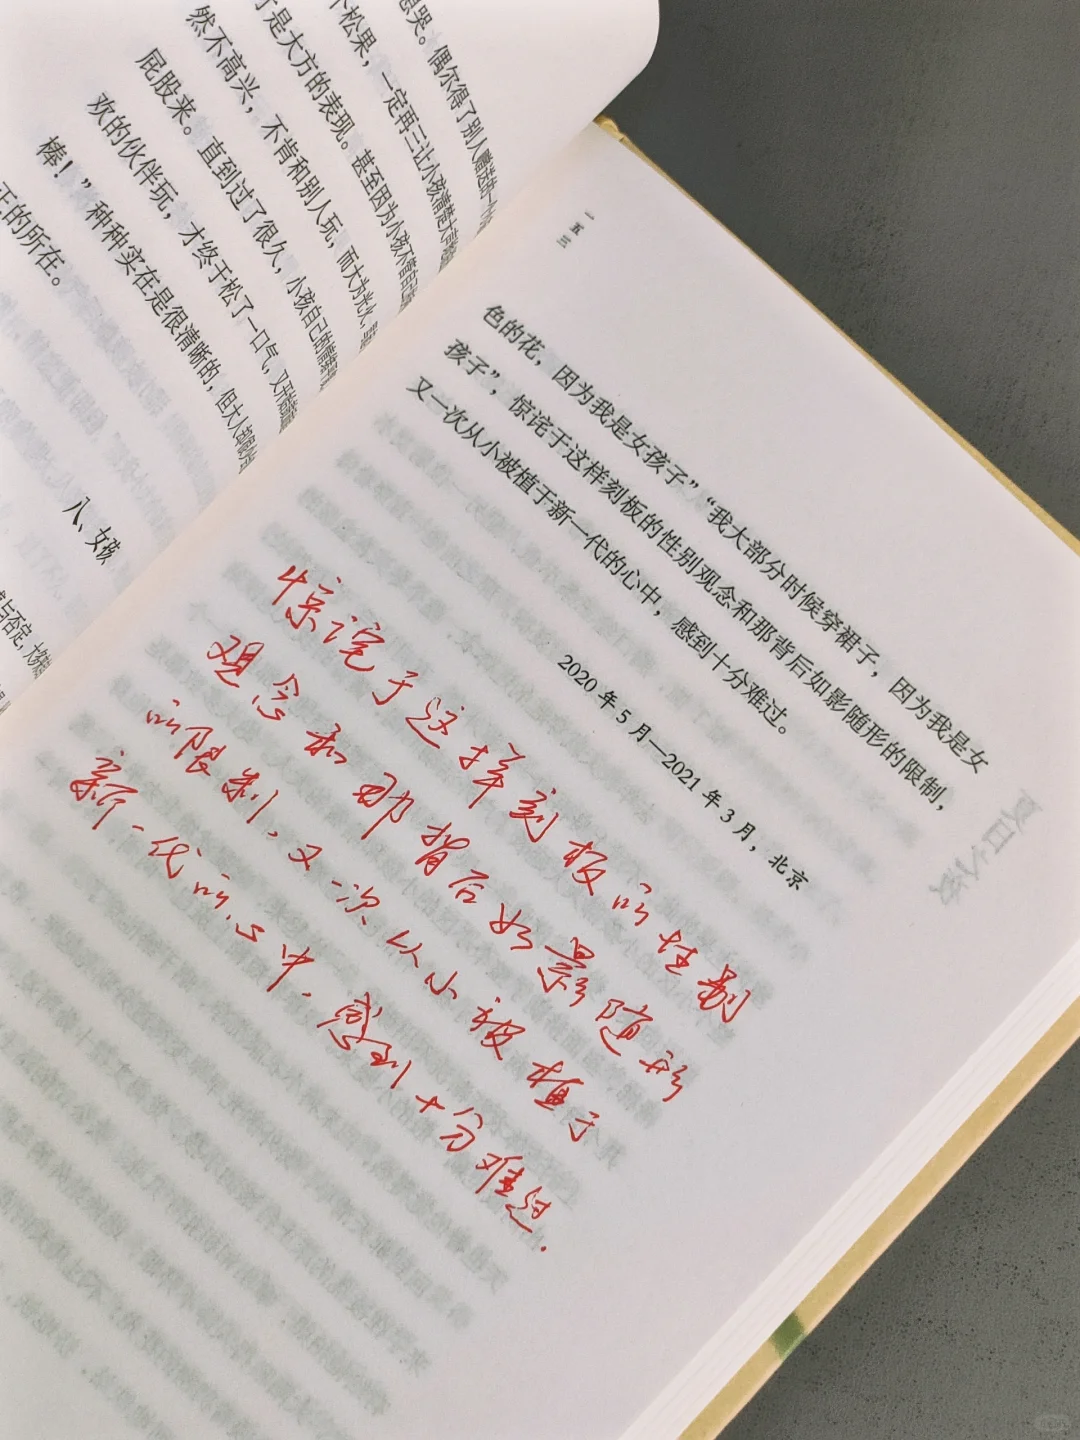 偶尔得了别人
个松果，一定再三让小孩
是大方的表现。甚至因为小孩不
然不高兴，不肯和别人玩，而大为光火，
屁股来。直到过了很久，小孩自己的情绪
欢的伙伴玩，才终于松了一口气，又
棒！”种种实在是很清晰的，但大人
正的所在。
八、女孩
与否定，大
一五三
色的花，因为我是女孩子”“我大部分时候穿裙子，因为我是女
孩子”，惊诧于这样刻板的性别观念和那背后如影随形的限制，
又一次从小被植于新一代的心中，感到十分难过。
2020 年 5 月—2021 年 3 月，北京
惊诧于这样刻板的性别
观念和那背后如影随形
的限制，又一次从小被植于
新一代的心中，感到十分难过.